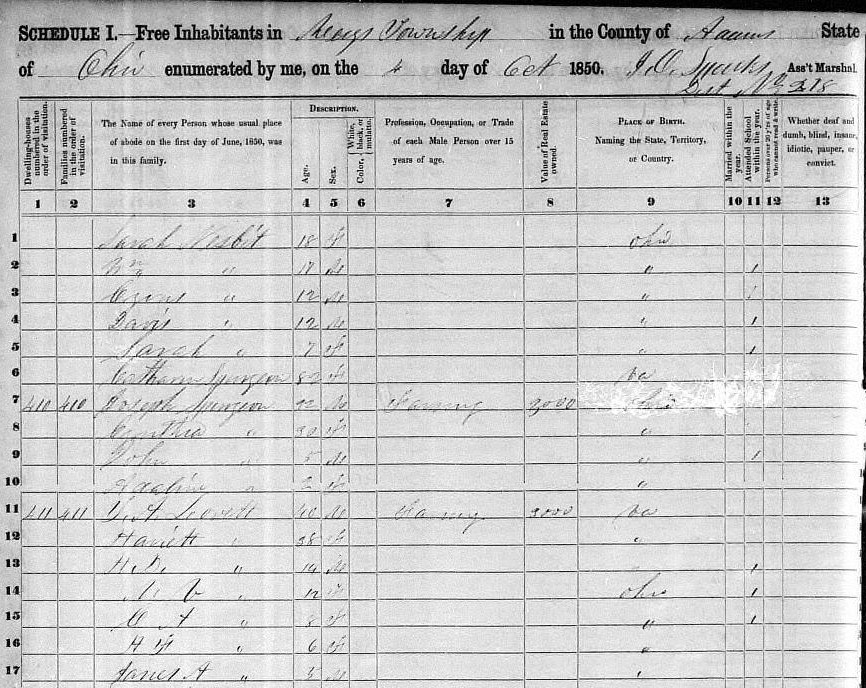 SCHEDULE I.—Free Inhabitants in Meigs Township in the County of Adams State
of Ohio enumerated by me, on the 4 day of Oct 1850. Ass't Marshal
Dwelling-houses numbered in the order of visitation.
Families numbered in the order of visitation.
The Name of every Person whose usual place of abode on the first day of June, 1850, was in this family.
DESCRIPTION.
Age.
Sex.
Color, White, black, or mulatto.
Profession, Occupation, or Trade of each Male Person over 15 years of age.
Value of Real Estate owned.
PLACE OF BIRTH. Naming the State, Territory, or Country.
Married within the year.
Attended School within the year.
Persons over 20 y'rs of age who cannot read & write.
Whether deaf and dumb, blind, insane, idiotic, pauper, or convict.
1 2 3 4 5 6 7 8 9 10 11 12 13
1 Sarah Nesbit 18 f Ohio
2 Wm " 17 M " 1
3 " 12 M " 1
4 Davis " 12 M " 1
5 Sarah " 7 f " 1
6 Spurgeon 82 f Va
7 410 410 Joseph Spurgeon M Farming Ohio
8 Cynthia " f "
9 John " 5 M " 1
10 " 2 f "
11 411 411 40 M Farming Va
12 Hariett " 38 f "
13 " 14 M " 1
14 " 12 Ohio 1
15 A " 8 f " 1
16 " 6 f "
17 James A " 5 M "